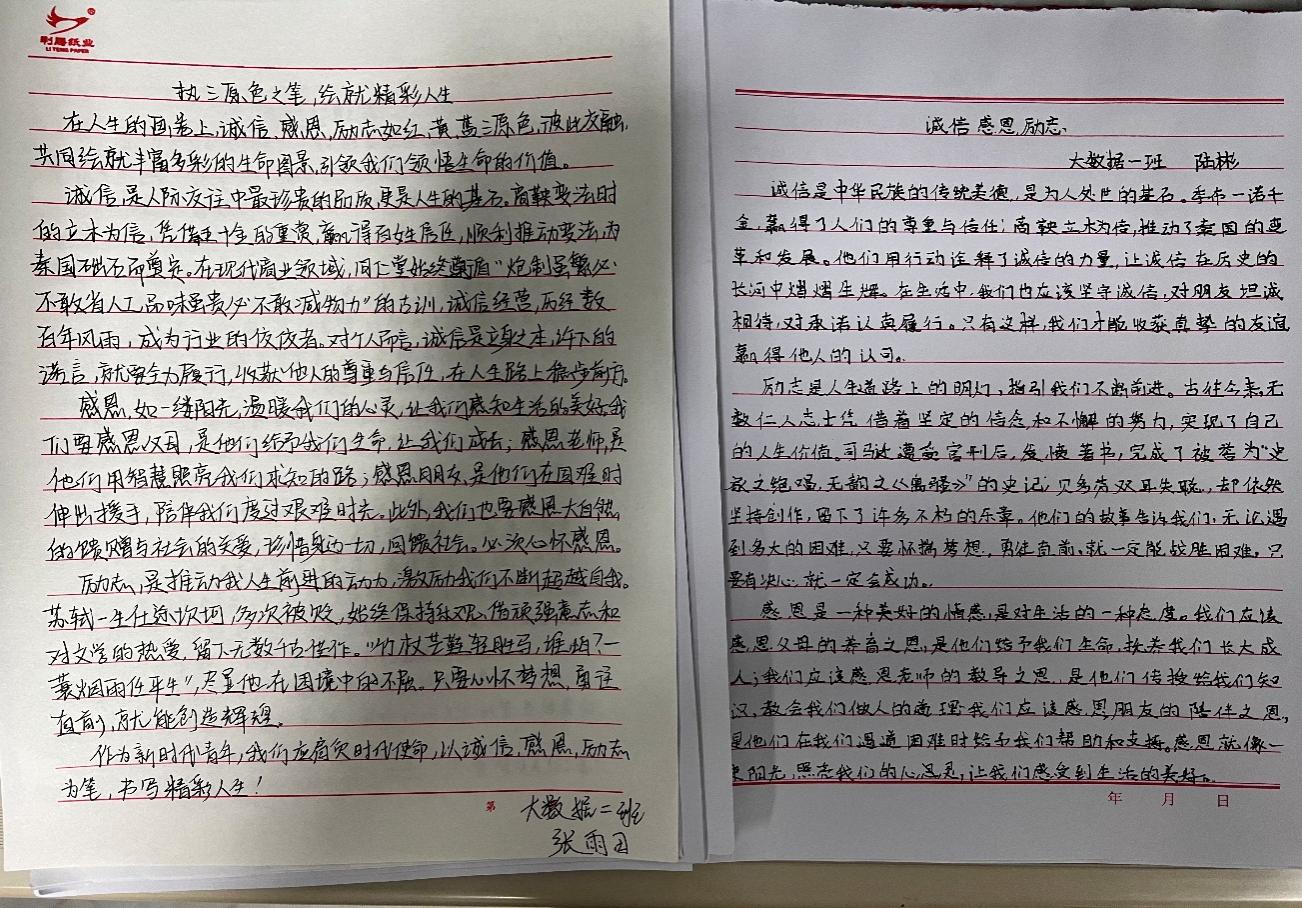 利腾纸业
LI TENG PAPER
执三原色之笔,绘就精彩人生
在人生的画卷上,诚信、感恩、励志如红、黄、蓝三原色,彼此交融,
共同绘就丰富多彩的生命图景,引领我们领悟生命的价值。
诚信,是人际交往中最珍贵的品质,更是人生的基石。商鞅变法时
的立木为信,凭借十金的重赏,赢得百姓信任,顺利推动变法,为
秦国础石而奠定。在现代商业领域,同仁堂始终遵循“炮制虽繁必
不敢省人工,品味虽贵必不敢减物力”的古训,诚信经营,历经数
百年风雨,成为行业的佼佼者。对个人而言,诚信是立身之本,许下的
诺言,就要全力履行,收获他人的尊重与信任,在人生路上稳步前行。
感恩,如一缕阳光,温暖我们的心灵,让我们感知生活的美好。我
们要感恩父母,是他们给予我们生命,让我们成长;感恩老师,是
他们用智慧照亮我们求知的路;感恩朋友,是他们在困难时
伸出援手,陪伴我们度过艰难时光。此外,我们也要感恩大自然
的馈赠与社会的关爱,珍惜身边一切,回馈社会。必次心怀感恩。
励志,是推动我人生前进的动力,激励我们不断超越自我。
苏轼一生仕途坎坷,多次被贬,始终保持乐观,借顽强意志和
对文学的热爱,留下无数千古佳作。“竹杖芒鞋轻胜马,谁怕?一
蓑烟雨任平生”,尽显他在困境中的不屈。只要心怀梦想,勇往
直前,就能创造辉煌。
作为新时代青年,我们应肩负时代使命,以诚信、感恩、励志
为笔,书写精彩人生!
第
大数据二班
张雨
诚信 感恩 励志
大数据一班 陆彬
诚信是中华民族的传统美德,是为人处世的基石。季布一诺千
金,赢得了人们的尊重与信任;商鞅立木为信,推动了秦国的变
革和发展。他们用行动诠释了诚信的力量,让诚信在历史的
长河中熠熠生辉。在生活中,我们也应该坚守诚信,对朋友坦诚
相待,对承诺认真履行。只有这样,我们才能收获真挚的友谊
赢得他人的认可。
励志是人生道路上的明灯,指引我们不断前进。古往今来,无
数仁人志士凭借着坚定的信念和不懈的努力,实现了自己
的人生价值。司马迁遭受宫刑后,发愤著书,完成了被誉为“史
家之绝唱,无韵之《离骚》”的史记;贝多芬双耳失聪,却依然
坚持创作,留下了许多不朽的乐章。他们的故事告诉我们,无论遇
到多大的困难,只要怀揣梦想,勇往直前,就一定能战胜困难。只
要有决心,就一定会成功。
感恩是一种美好的情感,是对生活的一种态度。我们应该
感恩父母的养育之恩,是他们给予我们生命,抚养我们长大成
人;我们应该感恩老师的教导之恩,是他们传授给我们知
识,教会我们做人的道理;我们应该感恩朋友的陪伴之恩,
是他们在我们遇道困难时给予我们帮助和支持。感恩就像一
束阳光,照亮我们的心灵,让我们感受到生活的美好。
年 月 日